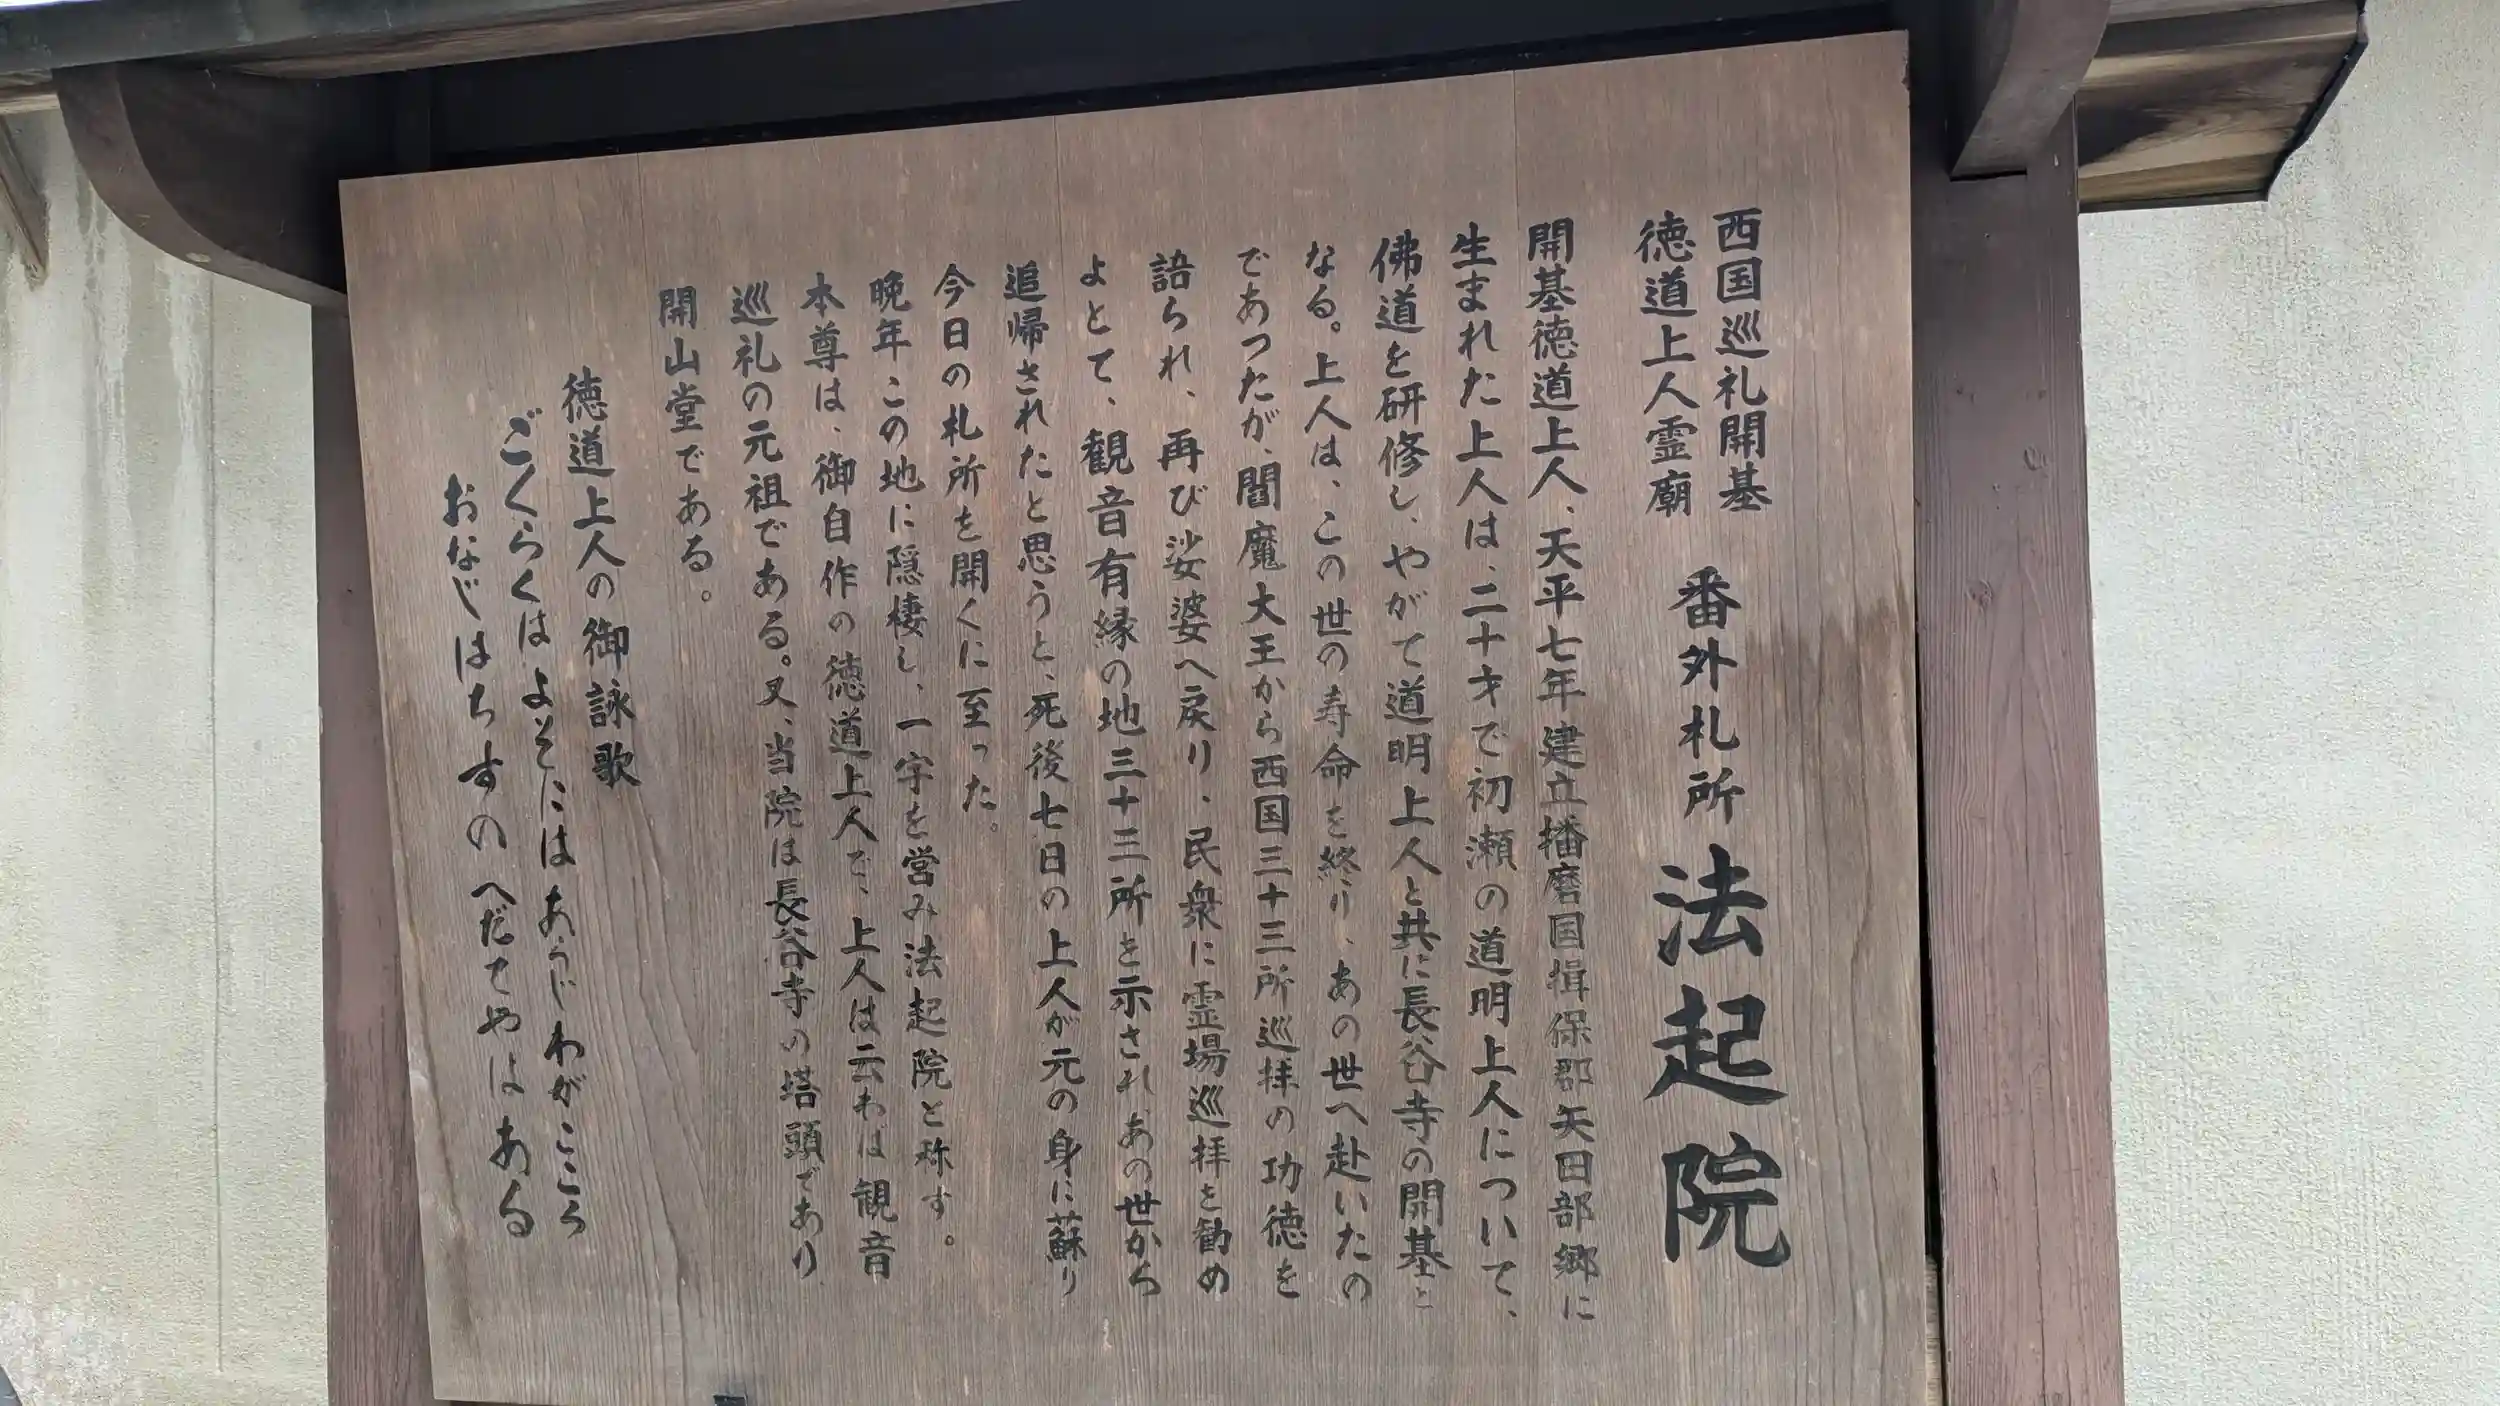 西国巡礼開基
徳道上人霊廟
番外札所 法起院
開基徳道上人、天平七年建立播磨国揖保郡矢田部郷に
生まれた上人は、二十才で初瀬の道明上人について、
佛道を研修し、やがて道明上人と共に長谷寺の開基と
なる。上人は、この世の寿命を終り、あの世へ赴いたの
であつたが、閻魔大王から西国三十三所巡拝の功徳を
語られ、再び娑婆へ戻り、民衆に霊場巡拝を勧め
よとて、観音有縁の地三十三所を示され、あの世から
追帰されたと思うと、死後七日の上人が元の身に蘇り
今日の札所を開くに至った。
晩年この地に隠棲し、一宇を営み法起院と称す。
本尊は、御自作の徳道上人で、上人は云わば観音
巡礼の元祖である。又、当院は長谷寺の塔頭であり
開山堂である。
徳道上人の御詠歌
ごくらくはよそにはあらじわがこころ
おなじはちすのへだてやはある